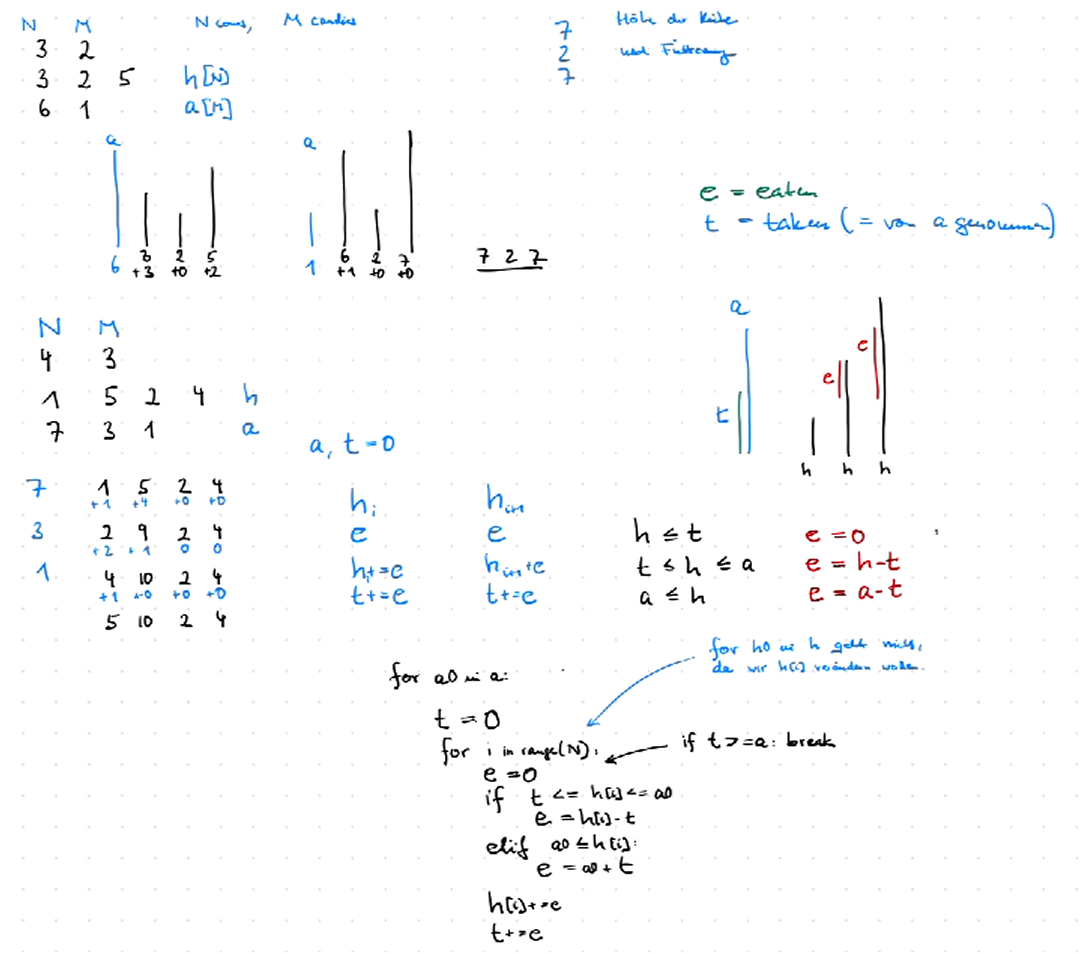 N M N cows, M candies
3 2
3 2 5 h[N]
6 1 a[M]
7 Höhe der Kühe
2 und Fütterung
7
a
6 3 2 5
+3 +0 +2
a
1 6 2 7
+1 +0 +0
7 2 7
e = eaten
t = taken (= von a genommen)
N M
4 3
1 5 2 4 h
7 3 1 a
a
t e e
h h h
a, t=0
7 1 5 2 4
+1 +4 +0 +0
3 2 9 2 4
+2 +1 0 0
1 4 10 2 4
+1 +0 +0 +0
5 10 2 4
hi hi+1
e e
hi+=e hi+1+e
t+=e t+=e
h ≤ t e = 0
t ≤ h ≤ a e = h-t
a ≤ h e = a-t
for h0 in h geht nicht,
da wir h[i] verändern wollen.
for a0 in a:
t = 0
for i in range(N):
if t>=a: break
e = 0
if t <= h[i] <= a0
e = h[i]-t
elif a0 ≤ h[i]:
e = a0 + t
h[i]+=e
t+=e